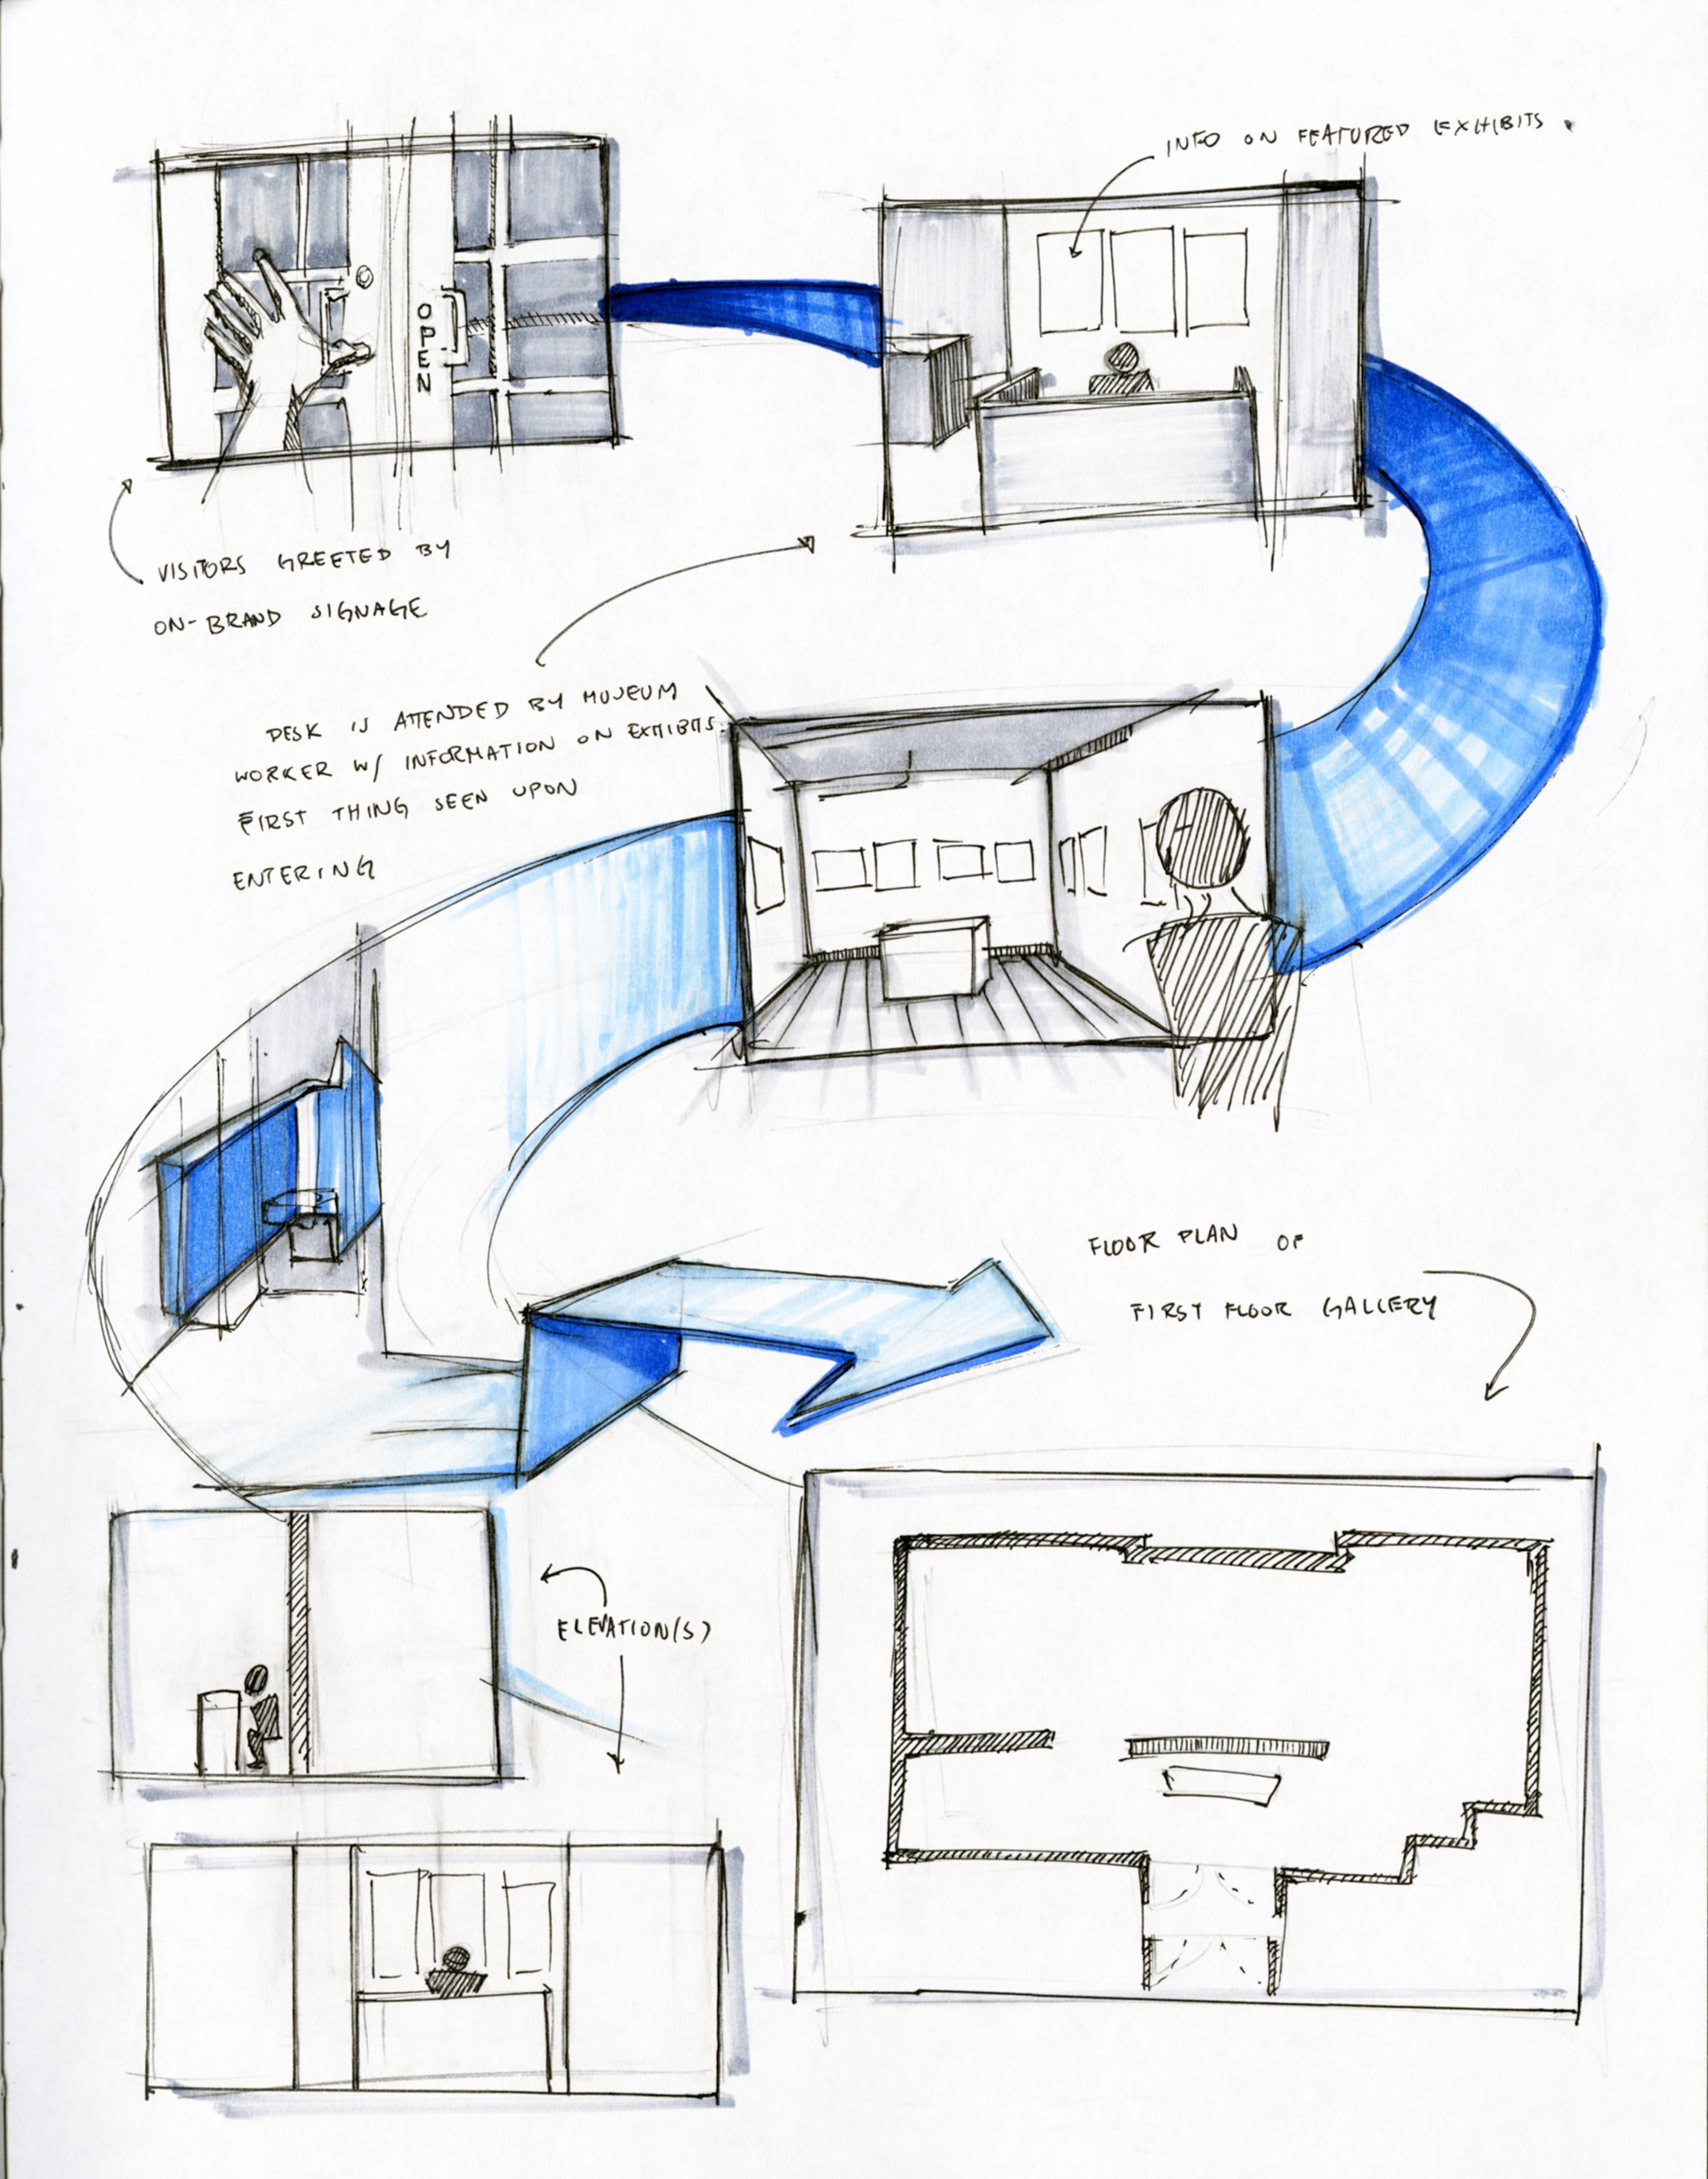 INFO ON FEATURED EXHIBITS
OPEN
VISITORS GREETED BY
ON-BRAND SIGNAGE
DESK IS ATTENDED BY MUSEUM
WORKER W/ INFORMATION ON EXHIBITS.
FIRST THING SEEN UPON
ENTERING
FLOOR PLAN OF
FIRST FLOOR GALLERY
ELEVATION(S)